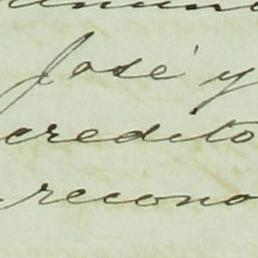 José y
credito
recono